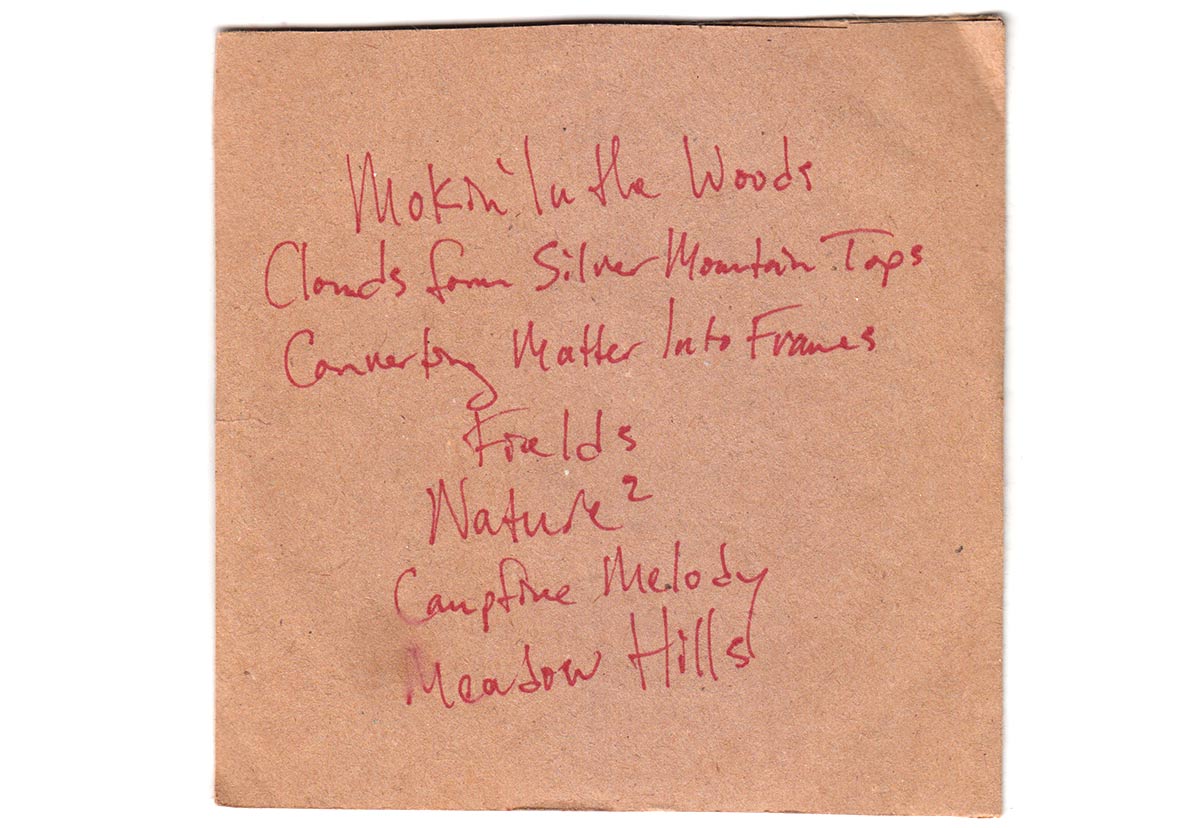 Mokin' In the Woods
Clouds form Silver Mountain Tops
Converting Matter Into Frames
Fields
Nature²
Campfire Melody
Meadow Hills